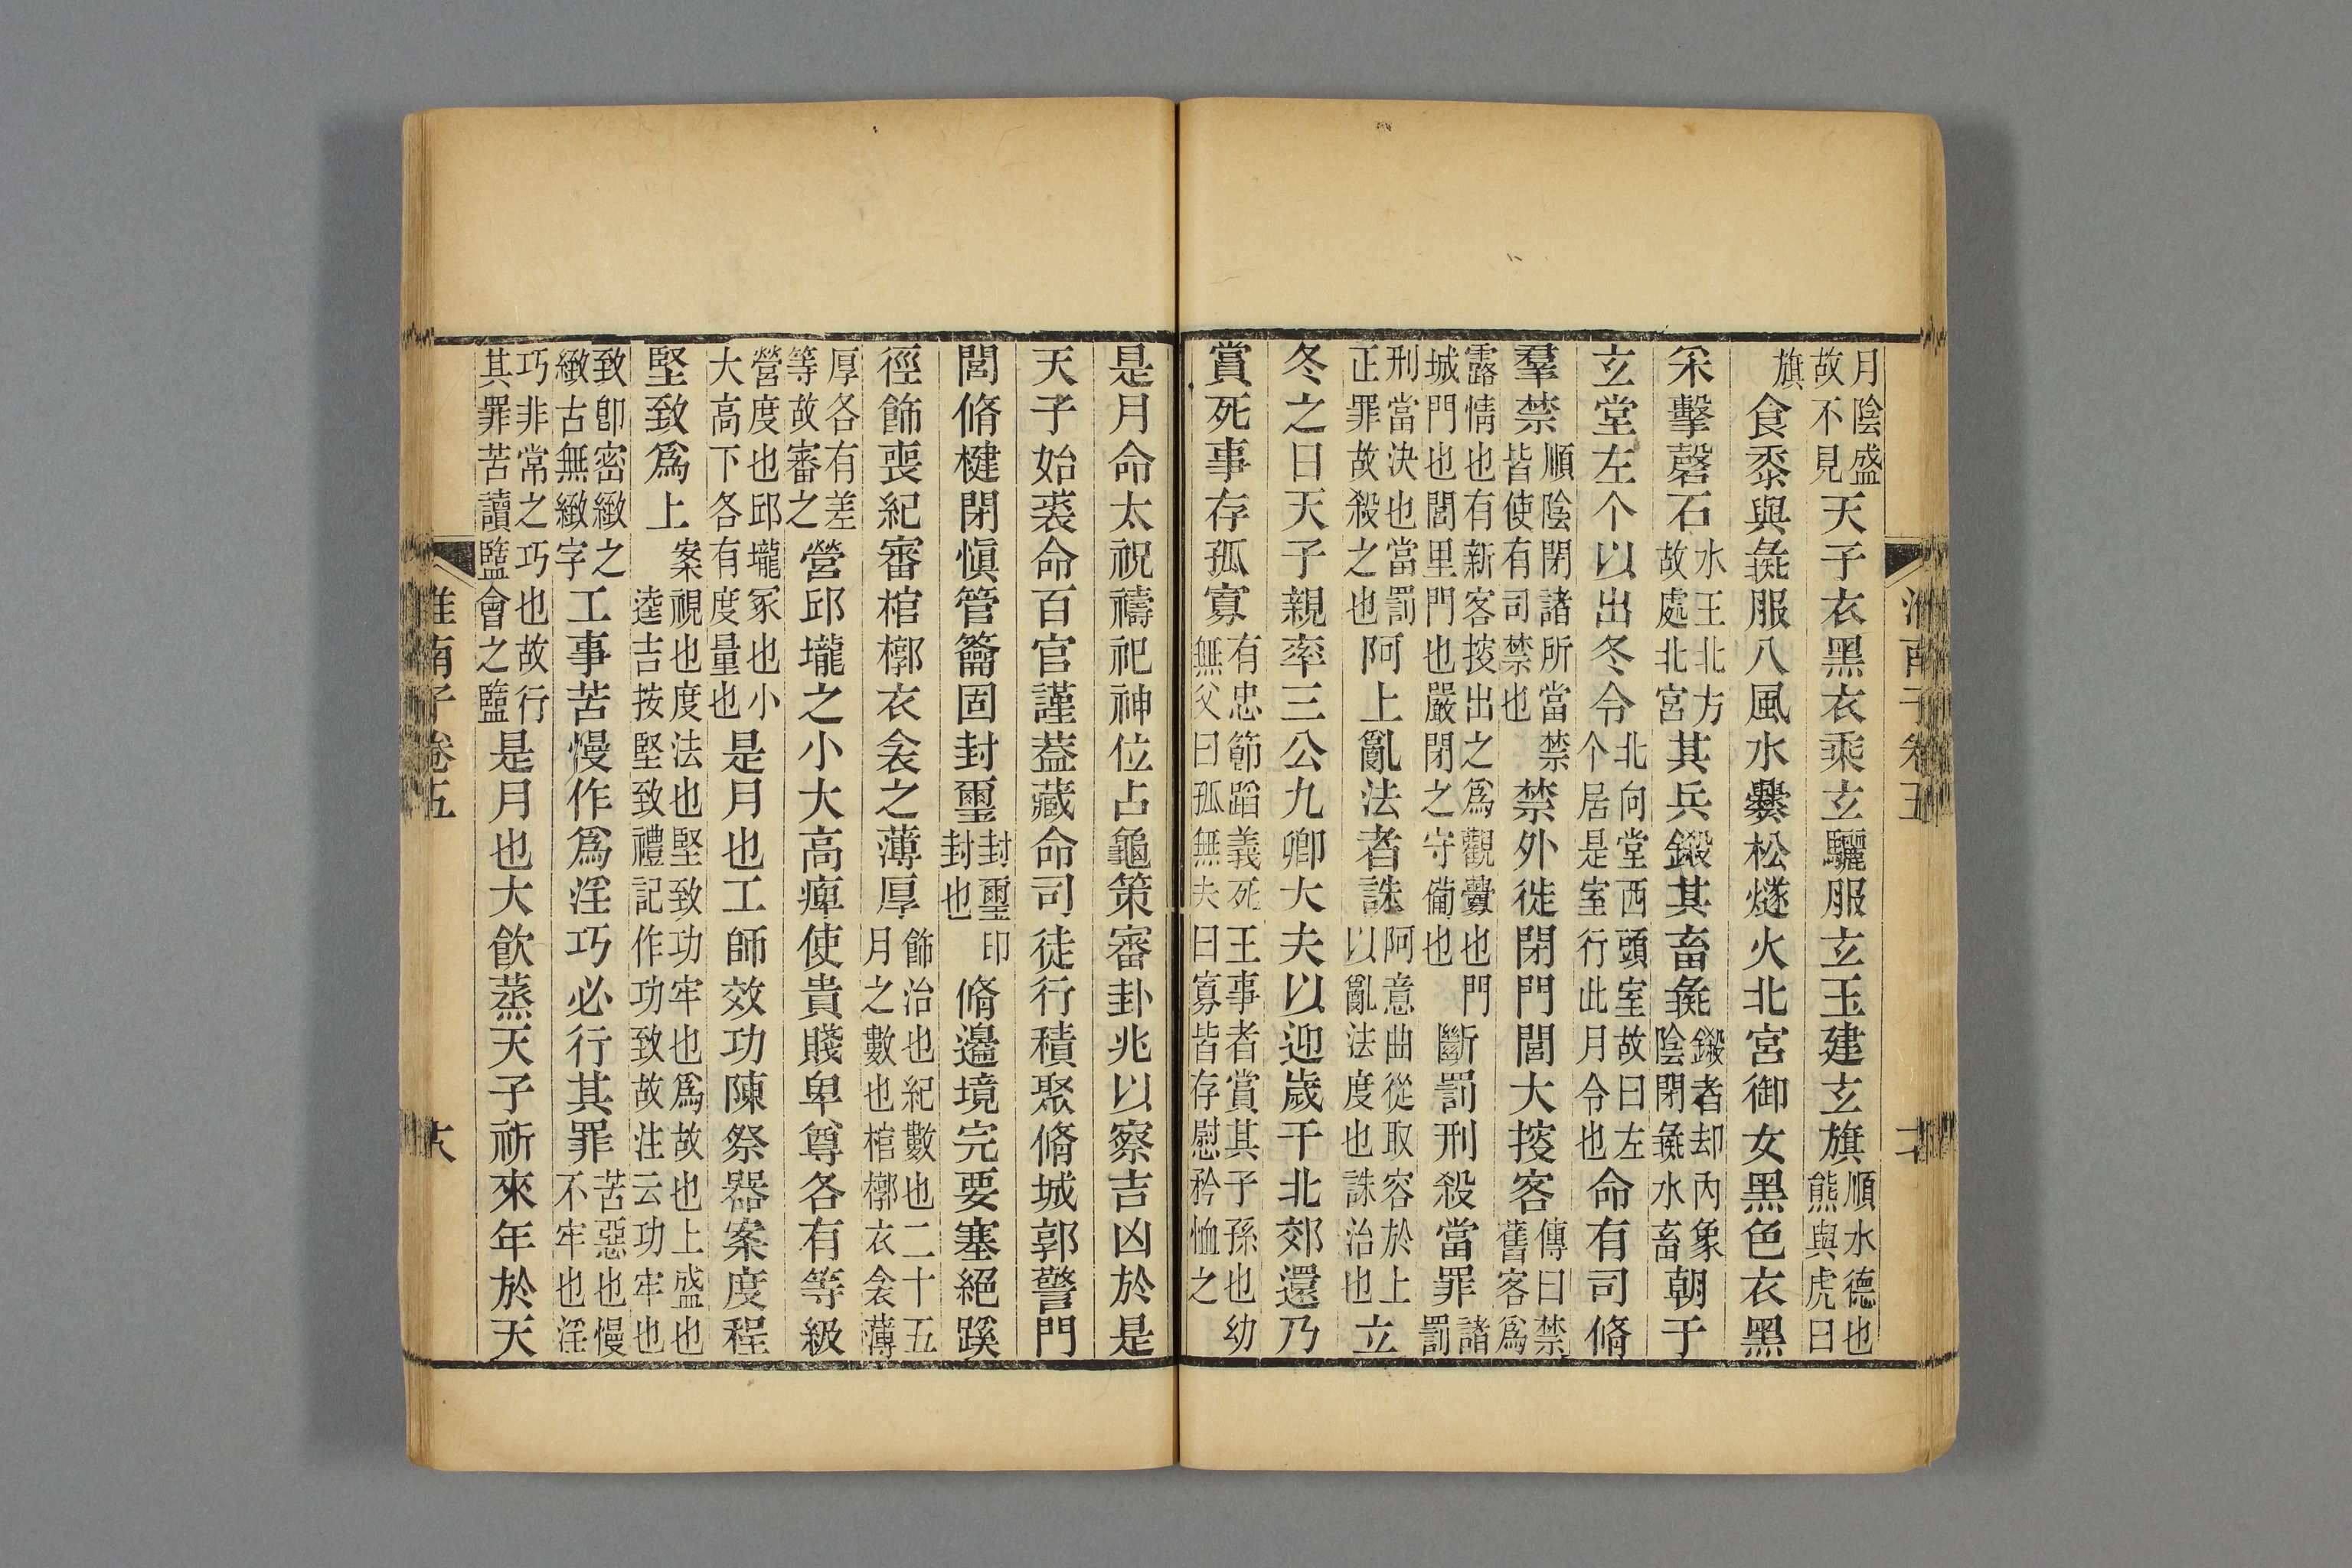 月陰盛故不見天子衣黑衣乘玄驪服玄玉建玄旗順水德也熊與虎曰
旗食黍與彘服八風水爨松燧火北宮御女黑色衣黑
采擊磬石水王北方故處北宮其兵鎩其畜彘鎩者却內象陰閉彘水畜朝于
玄堂左个以出冬令北向堂西頭室故曰左个居是室行此月令也命有司脩
羣禁順陰閉諸所當禁皆使有司禁也禁外徙閉門閭大搜客傳曰禁舊客爲
露情也有新客搜出之爲觀釁也門城門也閭里門也嚴閉之守備也斷罰刑殺當罪諸罰
刑當決也當罰正罪故殺之也阿上亂法者誅阿意曲從取容於上以亂法度也誅治也立
冬之日天子親率三公九卿大夫以迎歲于北郊還乃
賞死事存孤寡有忠節蹈義死王事者賞其子孫也幼無父曰孤無夫曰寡皆存慰矜恤之
是月命太祝禱祀神位占龜策審卦兆以察吉凶於是
天子始裘命百官謹葢藏命司徒行積聚脩城郭警門
閭脩楗閉愼管籥固封璽封璽印封也脩邊境完要塞絕蹊
徑飾喪紀審棺槨衣衾之薄厚飾治也紀數也二十五月之數也棺槨衣衾薄
厚各有差等故審之營邱壠之小大高痺使貴賤卑尊各有等級
營度也邱壠冢也小大高下各有度量也是月也工師效功陳祭器案度程
堅致爲上案視也度法也堅致功牢也爲故也上盛也逵吉按堅致禮記作功致故注云功牢也
致卽密緻之緻古無緻字工事苦慢作爲淫巧必行其罪苦惡也慢不牢也淫
巧非常之巧也故行其罪苦讀盬會之盬是月也大飲蒸天子祈來年於天
淮南子卷五